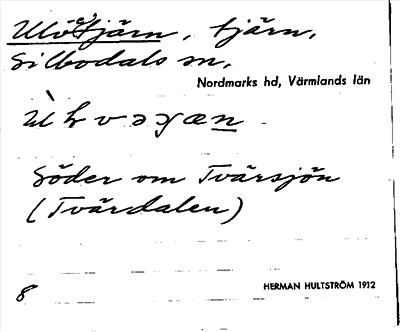 Ulvötjärn, tjärn,
Silbodals sn,
Nordmarks hd, Värmlands län
Söder om Tvärsjön
(Tvärdalen)
8
HERMAN HULTSTRÖM 1912